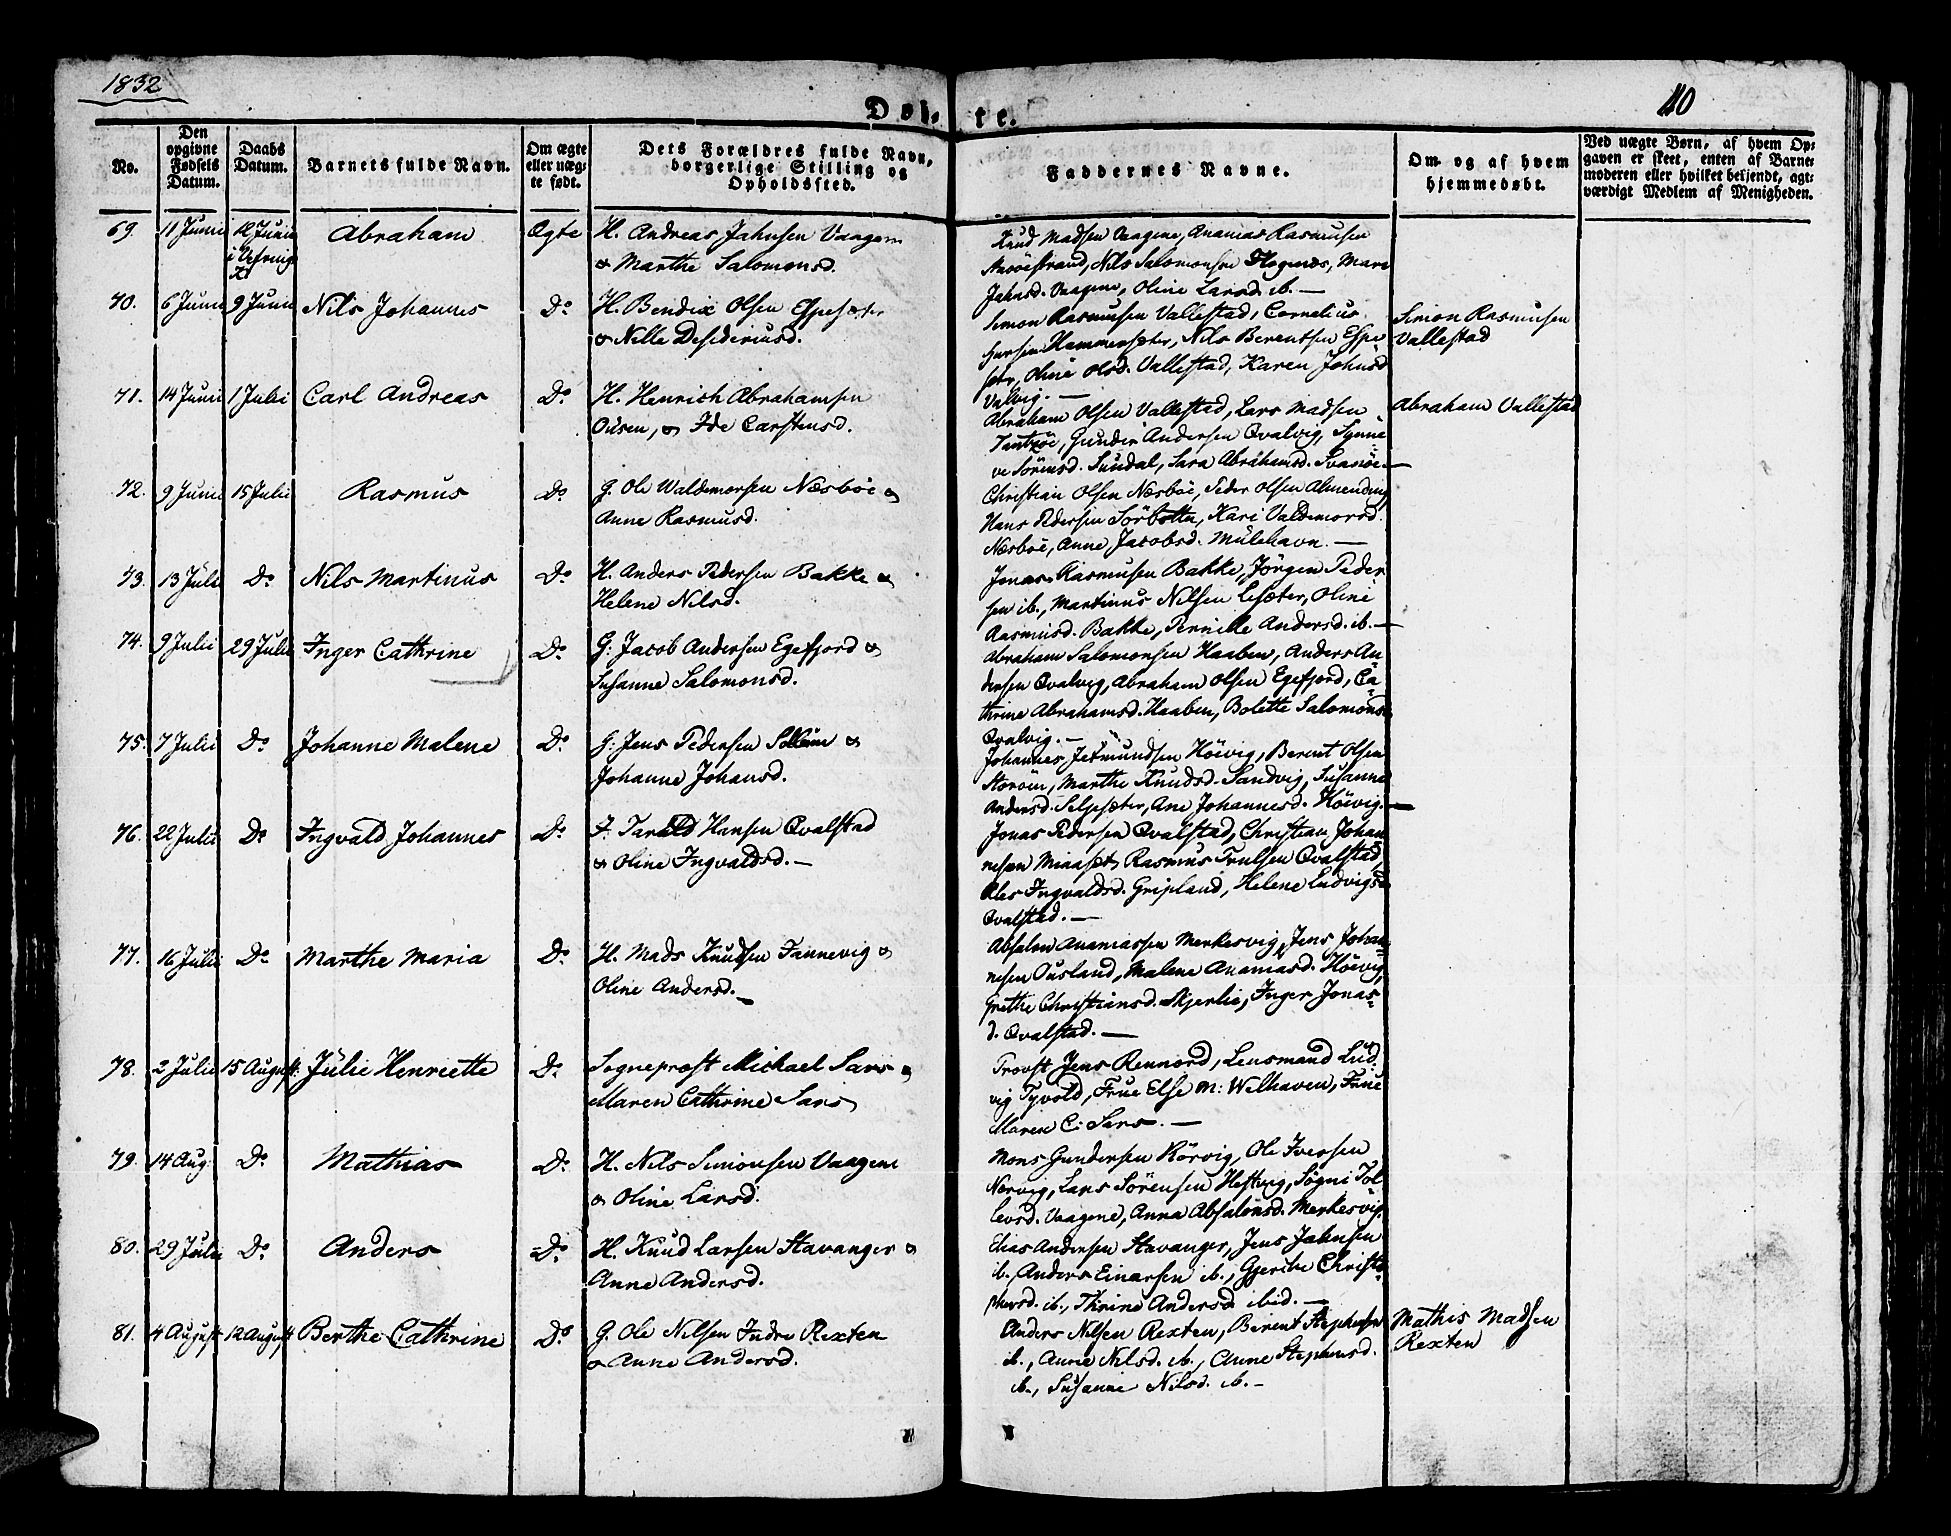 1832
110
Døbte.
No.
Den opgivne Fødsels Datum.
Daabs Datum.
Barnets fulde Navn.
Om ægte eller uægte født.
Dets Forældres fulde Navn, borgerlige Stilling og Opholdssted.
Faddernes Navne.
Om og af hvem hjemmedøbt.
Ved uægte Børn, af hvem Opgaven er skeet, enten af Barnemoderen eller hvilket bekjendt, agtværdigt Medlem af Menigheden.
69. 11 Junii 12 Junii Abraham Ægte H. Andreas Jahnsen Vaagene
& Marthe Salomonsd.
Knud Madsen Vaagene, Ananias Rasmusen
Nils Salomonsen Hognæs, Mari
Jahnsd. Vaagene, Oline Larsd. ib. —
70. 6 Junii 9 Junii Nils Johannes Do H. Bendix Olsen Espesæter
& Nille Desideriusd.
Simon Rasmusen Vallestad, Cornelius
Hammersæter, Nils Berentsen Espe
sæter, Oline Olsd. Vallestad, Karen Johnsd
Valvig. —
Simon Rasmusen
Vallestad
71. 14 Junii 1 Julii Carl Andreas Do H. Henrich Abrahamsen
Ousen, & Ide Carstensd.
Abraham Olsen Vallestad, Lars Madsen
Gunder Andersen Qvalvig, Synne
ve Sörensd. Sundal, Sara Abrahamsd. Svanöe. —
Abraham Vallestad
72. 9 Junii 15 Julii Rasmus Do G. Ole Waldemorsen Næsböe &
Anne Rasmusd.
Christian Olsen Næsböe, Peder Olsen Almending
Hans Pedersen Sörbotten, Kari Valdemorsd.
Næsböe, Anne Jacobsd. Mulehavn. —
73. 13 Juli Do Nils Martinus Do H. Anders Pedersen Bakke &
Helene Nilsd.
Jonas Rasmusen Bakke, Jörgen Peder
sen ib., Martinus Nilsen Lesæter, Oline
Rasmusd. Bakke, Pernille Andersd. ib. —
74. 9 Julii 29 Julii Inger Cathrine Do G: Jacob Andersen Egefjord &
Susanne Salomonsd.
Abraham Salomonsen Haaben, Anders An
dersen Qvalvig, Abraham Olsen Egefjord, Ca
thrine Abrahamsd. Haaben, Bolette Salomonsd.
Qvalvig. —
75. 7 Julii Do Johanne Malene Do G: Jens Pedersen &
Johanne Johansd.
Johannes Jetmundsen Höivig, Berent Olsen
Storöen, Marthe Knudsd. Sandvig, Susanne
Andersd. Seljesæter, Ane Johannesd. Höivig. —
76. 22 Julii Do Ingvald Johannes Do Hansen Qvalstad
& Oline Ingvaldsd. —
Jonas Pedersen Qvalstad, Christian Johan
nesen Rasmus Trulsen Qvalstad,
Ingvaldsd. Gripland, Helene Ludvigsd
Qvalstad. —
77. 16 Julii Do Marthe Maria Do H. Mads Knudsen Fannevig &
Oline Andersd. —
Absalon Ananiassen Merkesvig, Jens Johan
nesen Ousland, Malene Ananiasd. Höivig,
Grethe Christiansd. Skjerlie, Inger Jonas
d. Qvalstad. —
78. 2 Julii 15 August Julie Henriette Do Sognepræst Michael Sars &
Maren Cathrine Sars
Provst Jens Rennord, Lensmand Lud
vig Tyvold, Frue Else M: Welhaven, Frue
Maren C: Sars. —
79. 14 Aug: Do Mathias Do H. Nils Simonsen Vaagene
& Oline Larsd.
Mons Gundersen Rörvig, Ole Iversen
Nervig, Lars Sörensen Hestvig, Sögni Tol
levsd. Vaagene, Anna Absalonsd. Merkesvig.
80. 29 Julii Do Anders Do H. Knud Larsen Stavanger &
Anne Andersd.
Elias Andersen Stavanger, Jens Jahnsen
ib. Anders Einarsen ib., Gjerthe Christo
phersd. ib., Thrine Andersd ibid. —
81. 4 August 12 August Berthe Cathrine Do G. Ole Nilsen Indre Rexten
& Anne Andersd.
Anders Nilsen Rexten, Berent Stephensen
ib., Anne Nilsd. ib., Anne Stephensd.
ib., Susanne Nilsd. ib. —
Mathis Madsen
Rexten